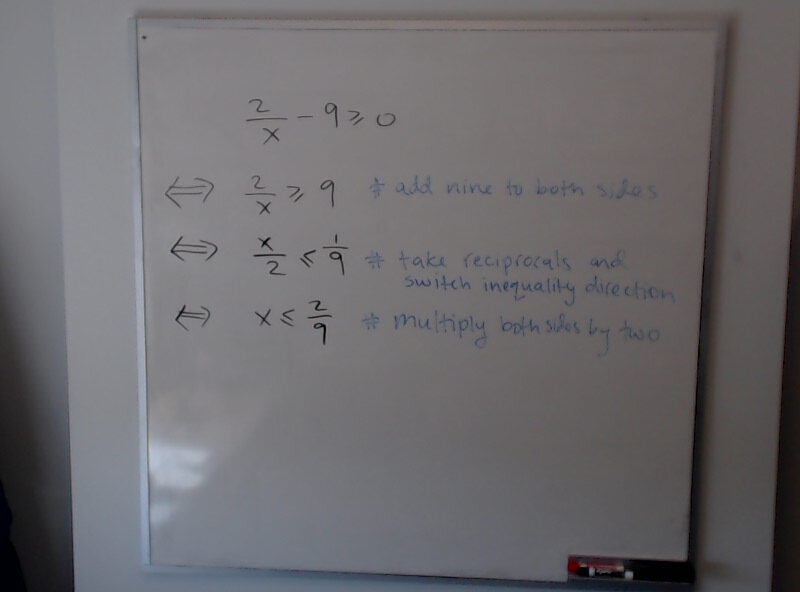 2/x - 9 ⩾ 0
⟺ 2/x ⩾ 9 # add nine to both sides
⟺ x/2 ⩽ 1/9 # take reciprocals and
switch inequality direction
⟺ x ⩽ 2/9 # multiply both sides by two